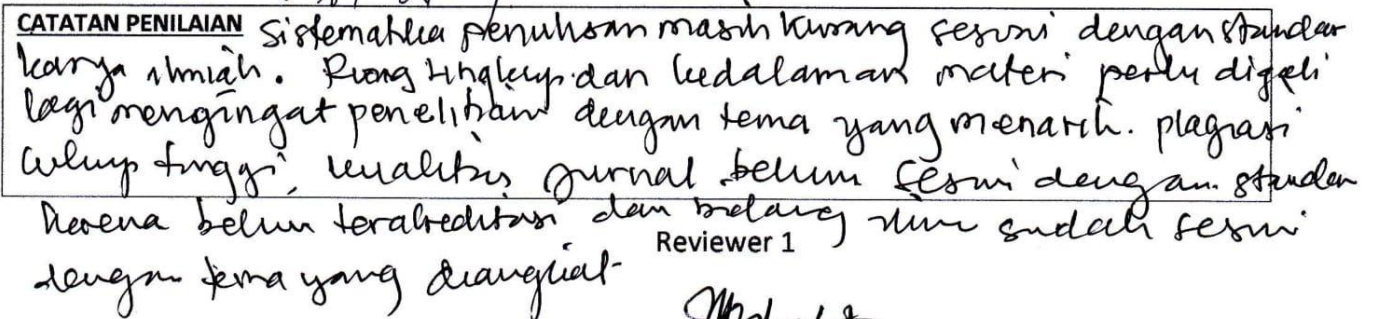 CATATAN PENILAIAN Sistematika penulisan masih kurang sesuai dengan standar
karya ilmiah. Ruang lingkup dan kedalaman materi perlu digali
lagi mengingat penelitian dengan tema yang menarik. plagiasi
cukup tinggi, kualitas jurnal belum sesuai dengan standar
karena belum terakreditasi dan bidang ilmu sudah sesuai
Reviewer 1
dengan tema yang diangkat